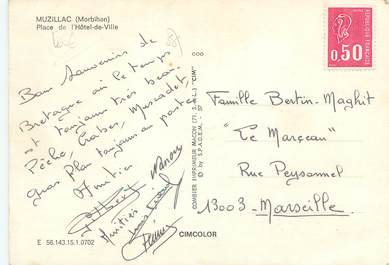 MUZILLAC (Morbihan)
Place de l'Hôtel-de-Ville
COO
REPUBLIQUE FRANCAISE
POSTES
0,50
Bon Souvenir de
Bretagne où le temps
est toujours très beau.
Pêche, Crabes, Muscadet,
gros plan toujours au poste
Amitiés
Amitiés
COMBIER IMPRIMEUR MACON (71 S.-&-L.) "CIM"
© by S.P.A.D.E.M. - 57
Famille Bertin-Maghit
"Le Marceau"
Rue Peyssonnel
13003 - Marseille.
E 56.143.15.1.0702
CIMCOLOR